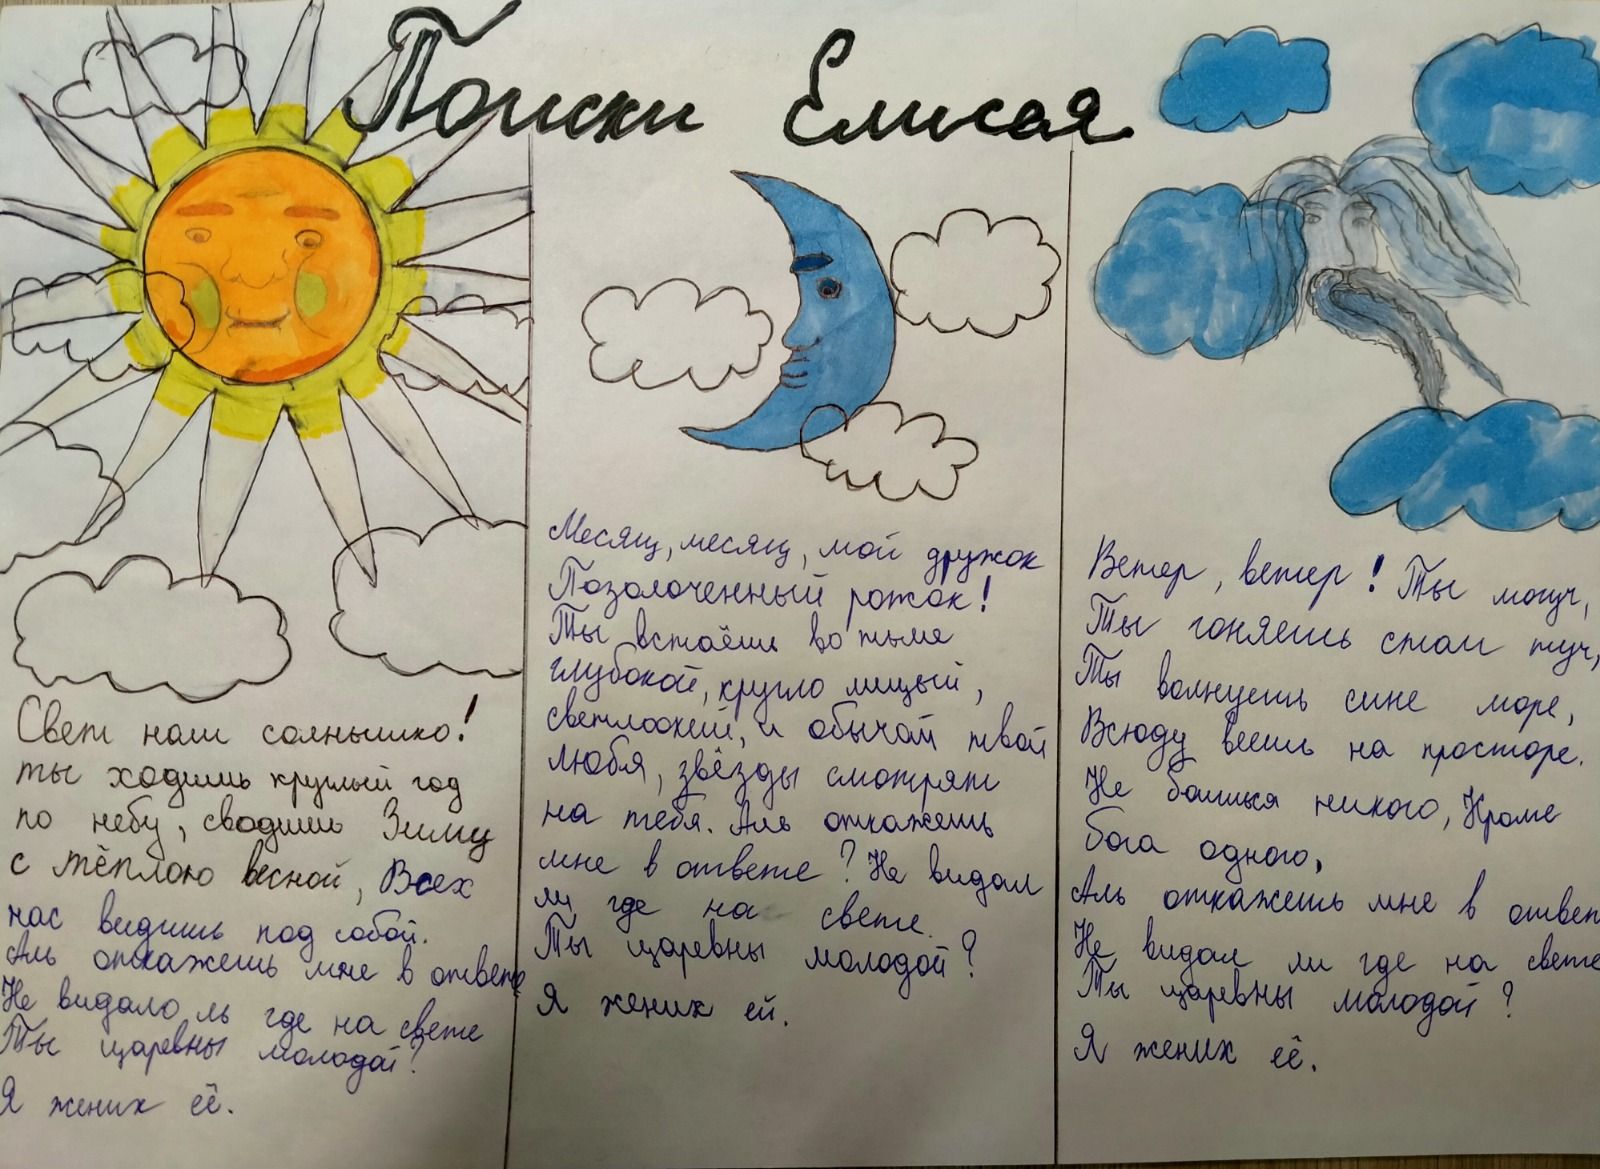 Поиски Елисея
Свет наш солнышко!
ты ходишь круглый год
по небу, сводишь Зиму
с тёплою весной, Всех
нас видишь под собой.
Аль откажешь мне в ответе
Не видало ль где на свете
Ты царевны молодой?
Я жених её.
Месяц, месяц, мой дружок
Позолоченный рожок!
Ты встаёшь во тьме
глубокой, кругло лицый,
светлоокий, и обычай твой
любя, звёзды смотрят
на тебя. Аль откажешь
мне в ответе? Не видал
ли где на свете
Ты царевны молодой?
Я жених ей.
Ветер, ветер! Ты могуч,
Ты гоняешь стаи туч,
Ты волнуешь сине море,
Всюду веешь на просторе.
Не боишься никого, Кроме
бога одного,
Аль откажешь мне в ответ
Не видал ли где на свете
Ты царевны молодой?
Я жених её.